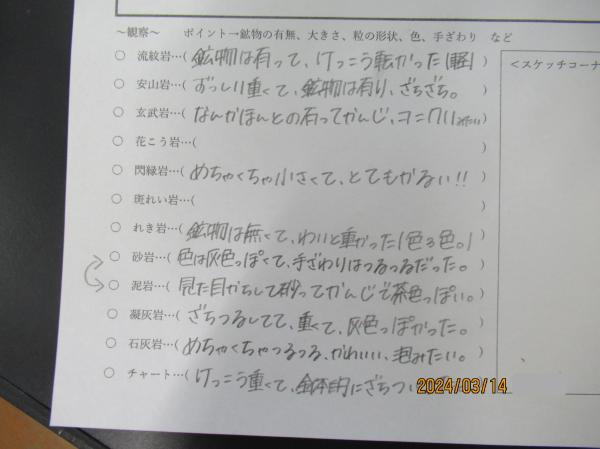 ～観察～　ポイント→鉱物の有無、大きさ、粒の形状、色、手ざわり　など
○ 流紋岩…(鉱物は有って、けっこう転かった(軽))
○ 安山岩…(ずっしり重くて、鉱物は有り、ざらざら。)
○ 玄武岩…(なんかほんとの石ってかんじ、コ＝クリみたい)
○ 花こう岩…(　)
○ 閃緑岩…(めちゃくちゃ小さくて、とてもかるい!!)
○ 斑れい岩…(　)
○ れき岩…(鉱物は無くて、わりと重かった/色3色。)
○ 砂岩…(色は灰色っぽくて、手ざわりはつるつるだった。)
○ 泥岩…(見た目からして砂ってかんじで茶色っぽい。)
○ 凝灰岩…(ざらつるしてて、重くて、灰色っぽかった。)
○ 石灰岩…(めちゃくちゃつるつる、かわいい、みたい。)
○ チャート…(けっこう重くて、全体的にざらつい
2024/03/14
＜スケッチコーナ